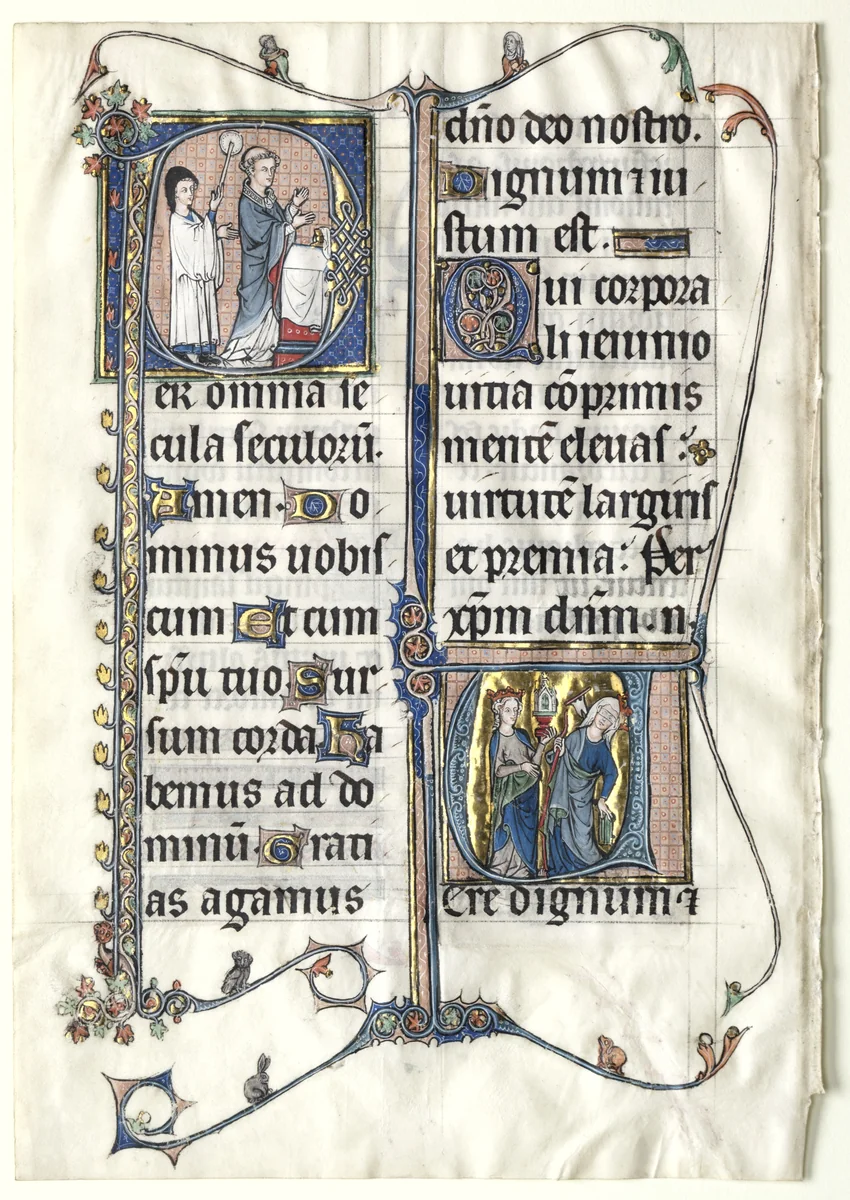 er omnia se
cula seculorũ.
Amen. Do
minus uobis
cum Et cum
sp̃u tuo Sur
sum corda ha
bemus ad do
minũ. Grati
as agamus
dño deo nostro.
Dignum ⁊ iu
stum est.
Qui corpora
li ieiunio
uitia cõprimis
mentẽ eleuas :
uirtutẽ largiris
et premia : Per
xp̃m dñm. n.
Uere dignum ⁊